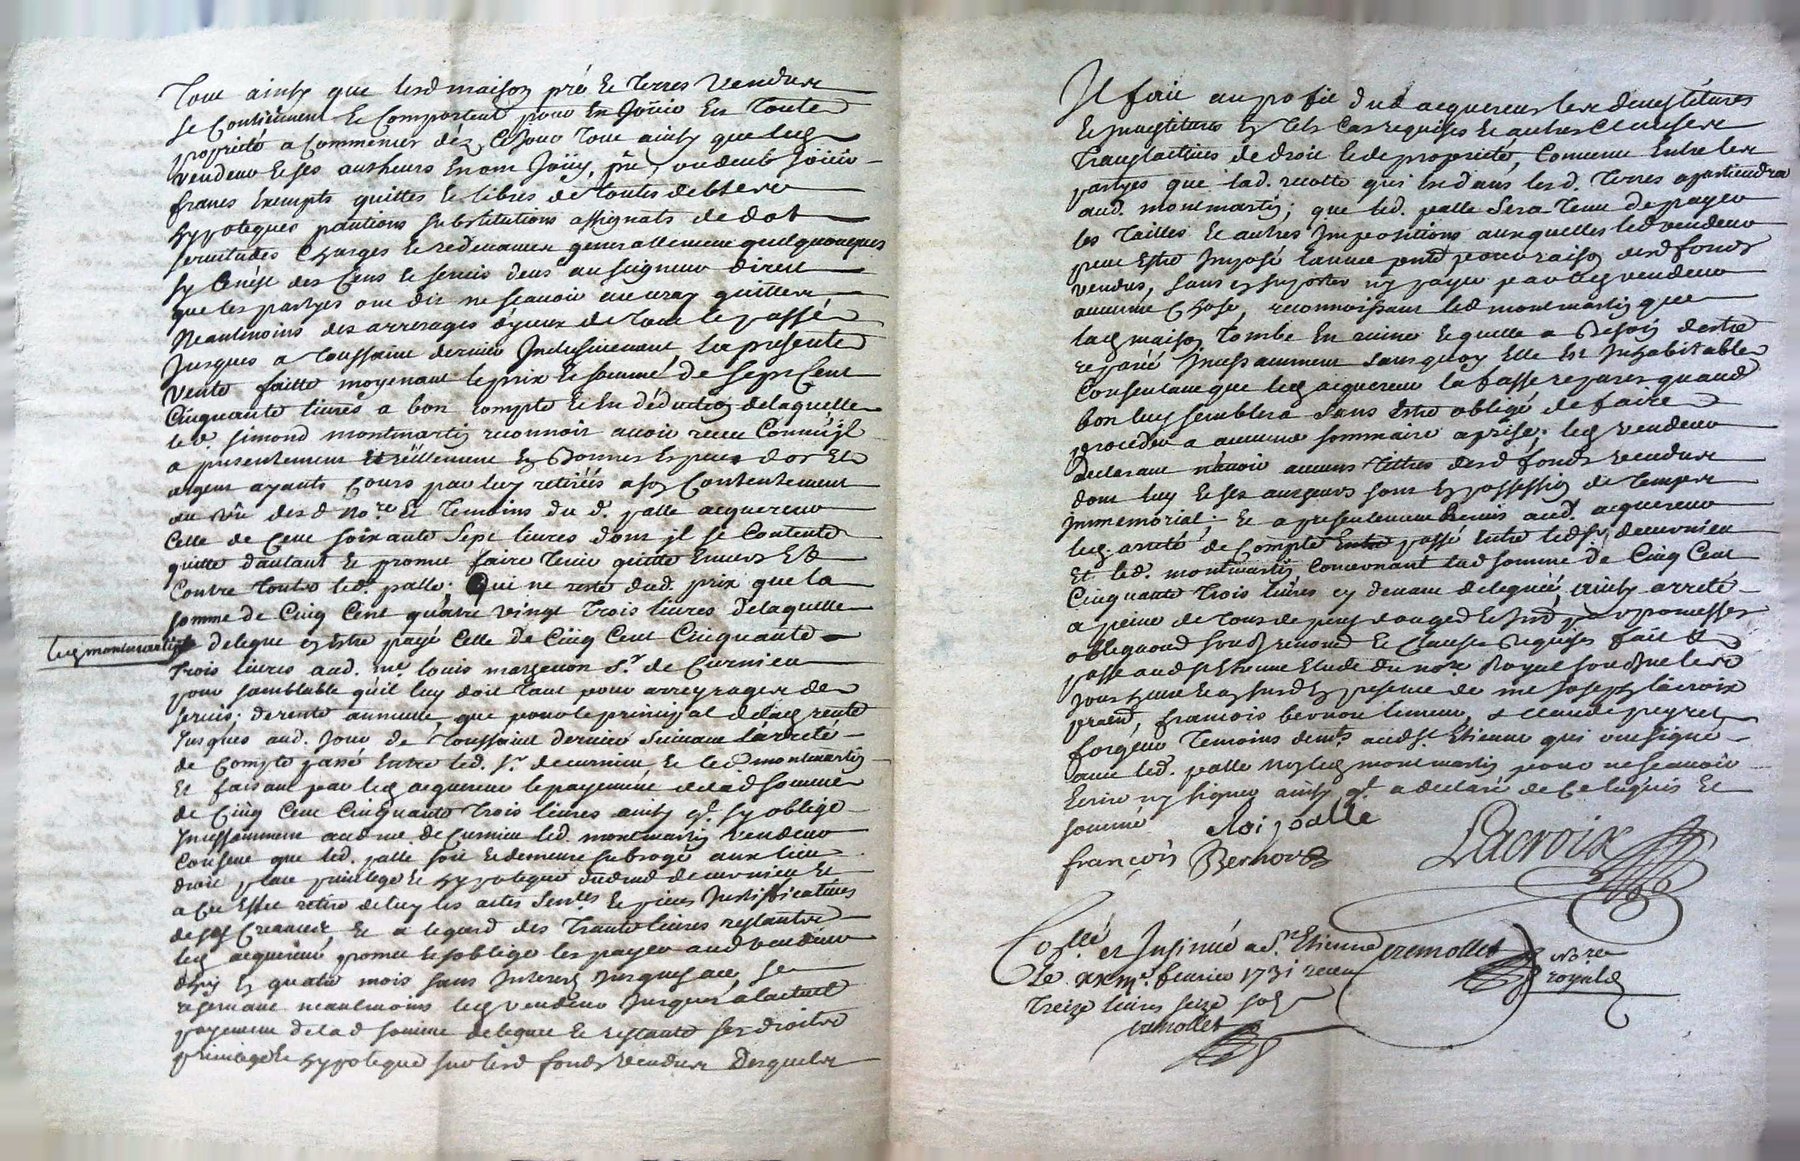 Tout ainsy que lesd maison pré et terres vendus
se contiennent et comportent pour en jouir en toute
propriété a commencer dès ce jour tout ainsy que led
vendeur et ses autheurs en ont jouy, pû, ou deub jouir
francs exempts quittes et libres de toutes debtes
hypoteques pentions substitutions assignats de dot
servitudes charges et redevances generallement quelquonques
sy ce n'est des cens et servis deus au seigneur direct
que les partyes ont dit ne scavoir au vray quittes
neantmoins des arrerages d'yceux de tout le passé
jusques a toussaint dernier inclusivement la presente
vente faitte moyenant le prix et somme de sept cent
cinquante livres a bon compte et en déduction de laquelle
led simond montmartin reconnoit avoir receu comme jl
a presentement et réellement en bonnes especes d'or et
argent ayants cours par luy retirées a son contentement
au vû desd no.re et temoins du d. palle acquereur
celle de cent soixante sept livres dont jl se contente
quitte d'autant et promet faire tenir quitte envers et
contre toutes led. palle; qui ne reste dud. prix que la
somme de cinq cent quatre vingt trois livres de laquelle
led montmartin
delegue estre payé celle de cinq cent cinquante
trois livres aud. me. louis marsenon sr. de curnieu
pour semblable qu'il luy doit tant pour arreyrages de
servis; de rente annuelle, que pour le principal de lad rente
jusques aud. jour de toussaint dernier suivant l'arreté
de compte passé entre led. sr. de curnieu et led montmartin
et faisant par led acquereur le payement de lad somme
de cinq cent cinquante trois livres ainsy q.l sy oblige
incessamment aud me de curnieu led. montmartin vendeur
consent que led. palle soit et demeure subrogé aux lieu
droit place privilege et hypoteque dud de curnieu et
a cet effet retire de luy les actes et pieces justificatives
de ses creances et a legard des trante livres restantes
led acquereur promet et s'oblige les payer aud vendeur
d'huy en quatre mois sans interest jusques a ce, se
reservant neantmoins led vendeur jusques a l'actuel
payement de lad somme deleguée et restante ses droits
privilege et hypoteque sur lesd fonds vendus desquels
Il fait au profit dud acquereur les devestitures
et investitures en tels cas requises et autres clauses
translatives de droit et de propriété, convenu entre les
partyes que lad. recolte qui est dans lesd. terres apartiendra
aud. montmartin; que led. palle sera tenu de payer
les tailles et autres impositions auxquelles led vendeur
peut estre imposé l'année pnte pour raison desd fonds
vendus, sans en suporter ny payer par led vendeur
aucune chose, reconnoissant led montmartin que
lad maison tombe en ruine et quelle a besoin destre
reparée incessamment sans quoy elle est inhabitable
consentant que led acquereur la fasse reparer quand
bon luy semblera sans estre obligé de faire
proceder a aucune sommaire aprise; led vendeur
declarant n'avoir aucuns tittres desd fonds vendus
dont luy et ses auteurs sont en possession de temps
immemorial; et a presentement remis aud. acquereur
led. arreté de compte passé entre led sr. de curnieu
et led. montmartin concernant lad somme de cinq cent
cinquante trois livres cy devant deleguée, ainsy arreté
a peine de tous depens domages et par promesses
obligaons soubs renond et clauses requises fait et
passé aud st Etienne etude du no.re royal soubsigné le
jour en presence de me joseph lacroix
praen, francois bernou et claude peyret
forgeur temoins demts aud st. Etienne qui ont signé
avec led. palle non led montmartin pour ne scavoir
ecrire ny signer ainsy q.l a declaré de ce enquis et
sommé
Roi palle
françois Bernou
Lacroix
Con.llé et insinué a st. Etienne
le février 1731 receu
treize livres seize sols
tremollet
tremollet
no.re
royal